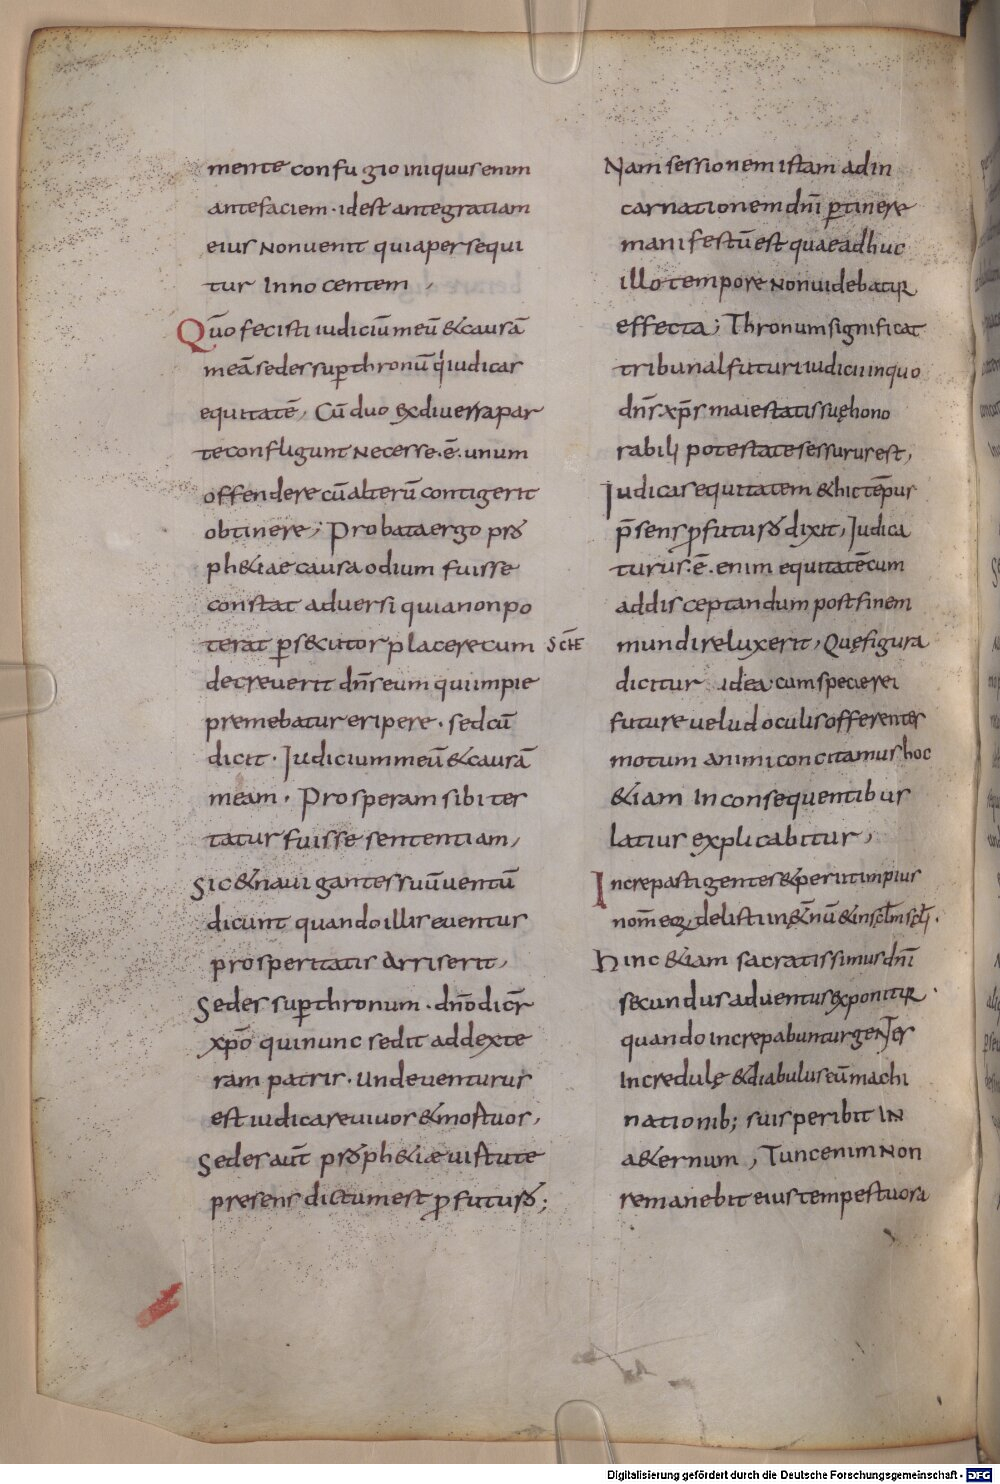 mente confugio iniquus enim
ante faciem · id est ante gratiam
eius Non uenit quia persequi
tur Innocentem ,
Qūo fecisti iudiciū meū & causā
meā sedes sup̄ thronū q iudicas
equitatē, Cū duo ex diuersa par
te confligunt Necesse · ē · unum
offendere cū alterū contigerit
obtinere ; Probata ergo pro
ph&iae causa odium fuisse
constat aduersi quia non po
terat p̄s&cutor placere cum
decreuerit dn̄s eum qui impie
premebatur eripere · sed cū
dicit · Iudicium meū & causā
meam · Prosperam sibi tes
tatur fuisse sententiam,
Sic & nauigantes suū uentū
dicunt quando illis euentus
prosperitatis Arriserit,
Sedes sup̄ thronum · dn̄o dicr̄
xp̄o qui nunc sedit ad dexte
ram patris · Unde uenturus
est iudicare uiuos & mortuos,
Sedes aūt proph&iæ uirtute
presens dictum est p futuro ;
SCHE
Nam sessionem istam ad in
carnationem dn̄i p̄tinere
manifestū est quae adhuc
illo tempore Non uidebatur
effecta ; Thronum significat
tribunal futuri iudicii in quo
dn̄s xp̄s maiestatis suę hono
rabili potestate sessurus est,
Iudicas equitatem & hic tēpus
p̄sens p futuro dixit, Iudica
turus · ē · enim equitatē cum
ad disceptandum post finem
mundi reluxerit, Quę figura
dicitur idea cum speciē rei
future uelud oculis offerentes
motum animi concitamus hoc
&iam In consequentibus
latius explicabitur ,
Increpasti gentes & periit impius
nom̄ eoꝝ delisti in &n̄ū & in sc̄lm sc̄li ·
Hinc &iam sacratissimus dn̄i
secundus aduentus exponitur ·
quando increpabuntur geNTes
Incredulę & diabulus cū machi
nationib; suis peribit IN
a&ernum , Tunc enim Non
remanebit eius tempestuosa
Digitalisierung gefördert durch die Deutsche Forschungsgemeinschaft - DFG